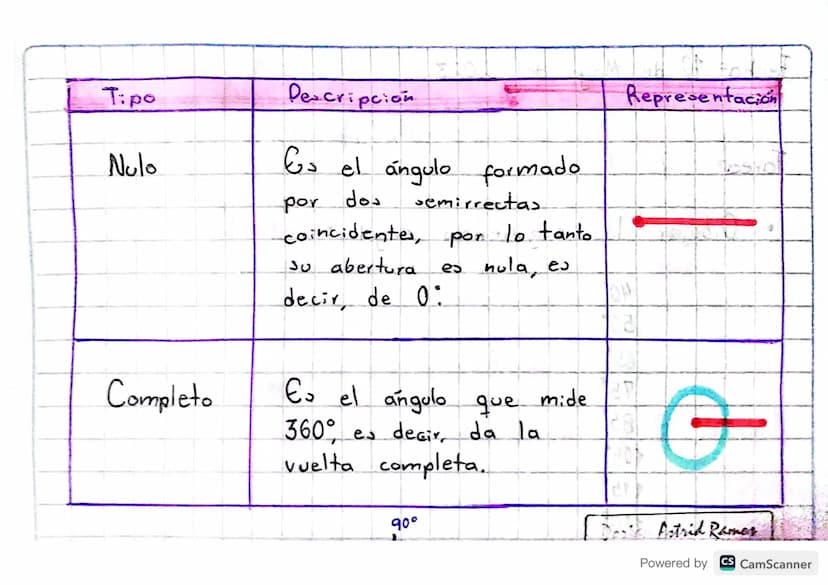 Tipo Descripción Representación
Nulo
Es el ángulo formado
por dos semirrectas
coincidentes, por lo tanto
su abertura es nula, es
decir, de 0°.
Completo
Es el ángulo que mide
360°, es decir, da la
vuelta completa.
90°
Astrid Ramos
Powered by CS CamScanner